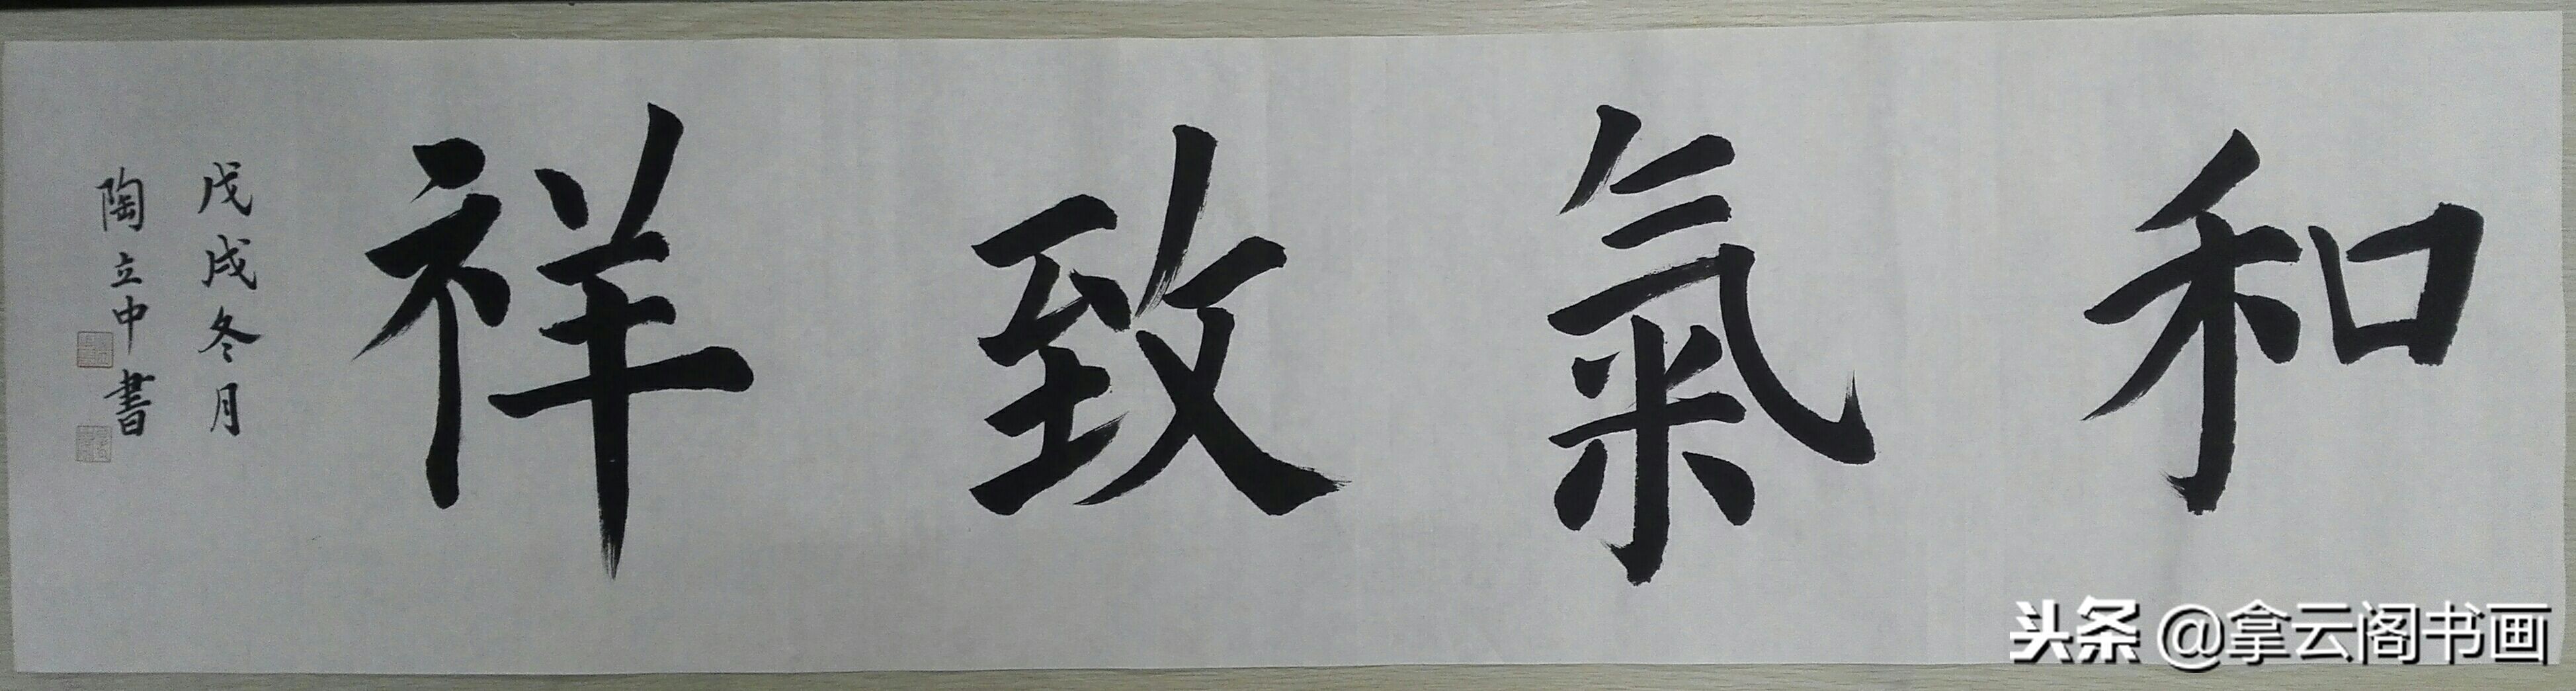 和氣致祥
戊戌冬月
陶立中書
头条 @拿云阁书画